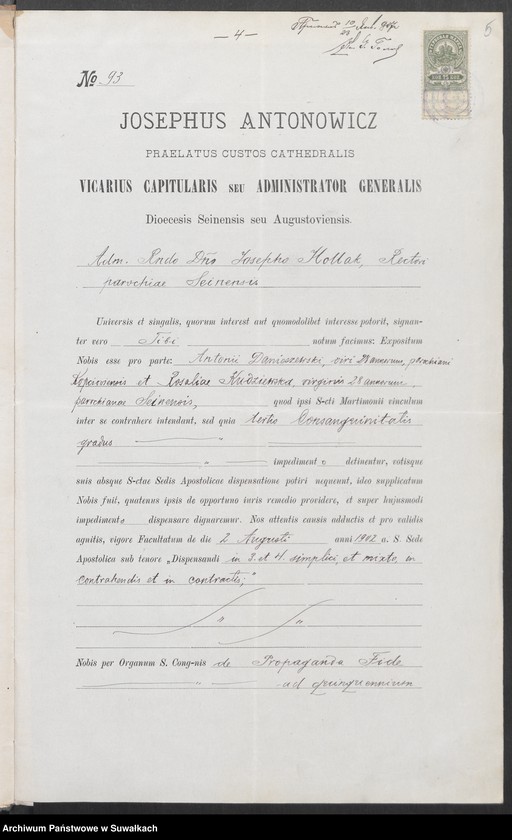 — 4 —
5
№ 93
JOSEPHUS ANTONOWICZ
PRAELATUS CUSTOS CATHEDRALIS
VICARIUS CAPITULARIS SEU ADMINISTRATOR GENERALIS
Dioecesis Seinensis seu Augustoviensis.
Adm. Rndo Dño Josepho Hollak, Rectori
parochiae Seinensis
Universis et singulis, quorum interest aut quomodolibet interesse poterit, signan-
ter vero Tibi notum facimus: Expositum
Nobis esse pro parte Antonii Daniszewski, viri 28 annorum, parochiani
et Rosaliae virginis 28 annorum,
parochianae Seinensis, quod ipsi S-cti Martimonii vinculum
inter se contrahere intendant, sed quia tertio Consanguinitatis
gradus
impediment o detinentur, votisque
suis absque S-ctae Sedis Apostolicae dispensatione potiri nequeunt, ideo supplicatum
Nobis fuit, quatenus ipsis de opportuno iuris remedio providere, et super hujusmodi
impedimento dispensare dignaremur. Nos attentis causis adductis et pro validis
agnitis, vigore Facultatum de die 2 Augusti anni 1902 a. S. Sede
Apostolica sub tenore „Dispensandi in 3. et 4. simplici, et mixto, in
contrahendis et in contractis;"
Nobis per Organum S. Cong-nis de Propaganda Fide
ad quinquennium
Archiwum Państwowe w Suwałkach